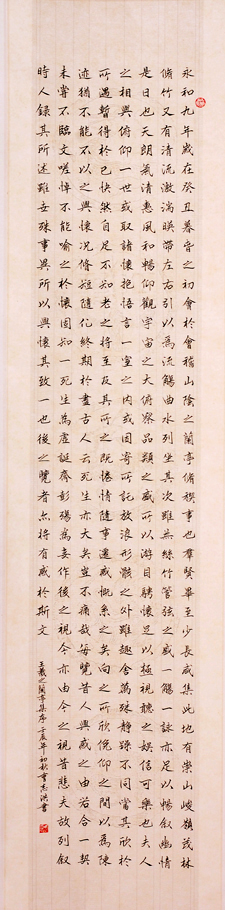 永和九年歲在癸丑暮春之初會於會稽山陰之蘭亭脩禊事也羣賢畢至少長咸集此地有崇山峻嶺茂林
脩竹又有清流激湍映帶左右引以為流觴曲水列坐其次雖無絲竹管弦之盛一觴一詠亦足以暢敘幽情
是日也天朗氣清惠風和暢仰觀宇宙之大俯察品類之盛所以游目騁懷足以極視聽之娛信可樂也夫人
之相與俯仰一世或取諸懷抱悟言一室之內或因寄所託放浪形骸之外雖趣舍萬殊靜躁不同當其欣於
所遇暫得於己快然自足不知老之將至及其所之既惓情隨事遷感慨係之矣向之所欣俛仰之間以為陳
迹猶不能不以之興懷況脩短隨化終期於盡古人云死生亦大矣豈不痛哉每覽昔人興感之由若合一契
未嘗不臨文嗟悼不能喻之於懷固知一死生為虛誕齊彭殤為妄作後之視今亦由今之視昔悲夫故列敘
時人錄其所述雖世殊事異所以興懷其致一也後之覽者亦將有感於斯文
王羲之蘭亭集序 壬辰年初秋曹志洪書